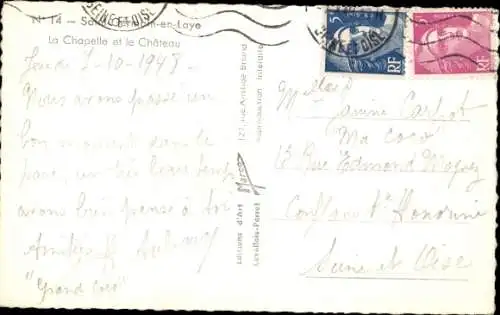 N° 14 - Saint-Germain-en-Laye
La Chapelle et le Château
SEINE-ET-OISE
Jeudi 7-10-1948
Nous avons passé un
bon moment dans le
parc un très beau temps
avons bien pensé à toi
Amitiés
"Grand
Editions d'Art
Levallois-Perret
127, rue Aristide Briand
Reproduction interdite
5
RF
RF
Janine
Ma
13 Rue Edmond
Conflans Ste Honorine
Seine et Oise